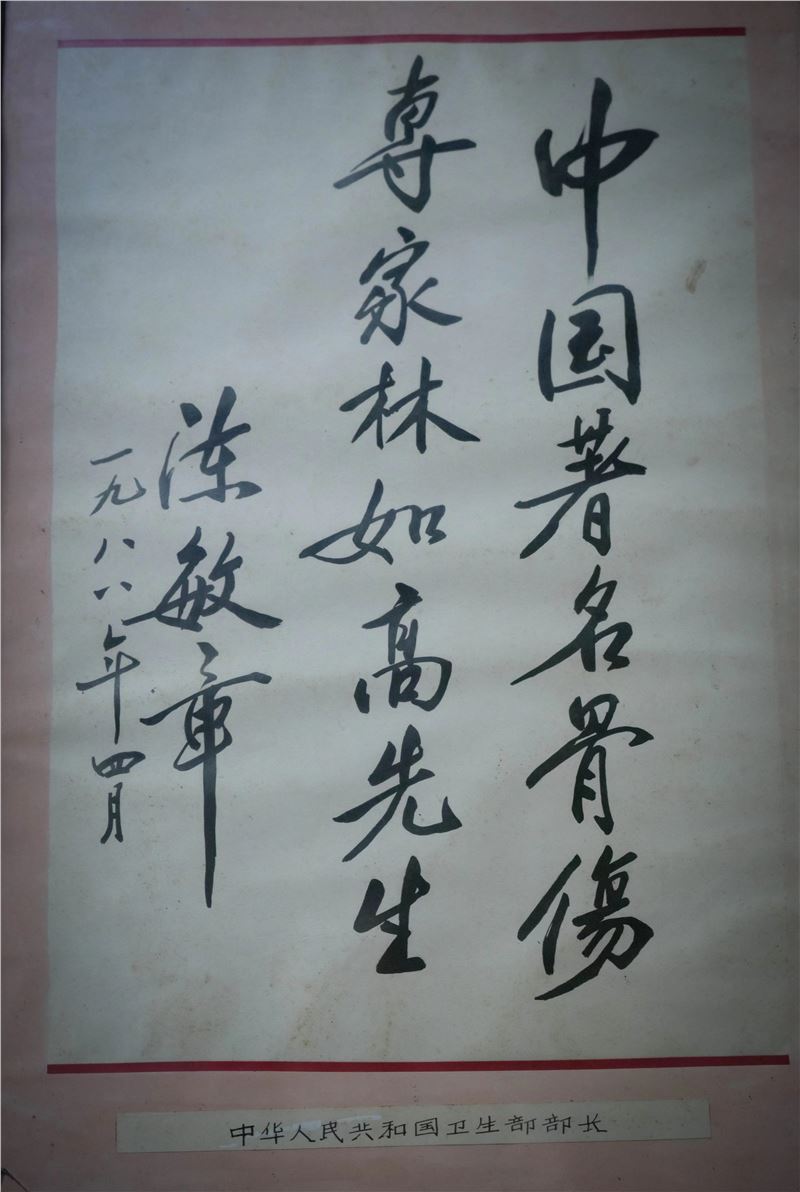 中国著名骨傷
専家林如高先生
陈敏章
一九八八年四月
中华人民共和国卫生部部长